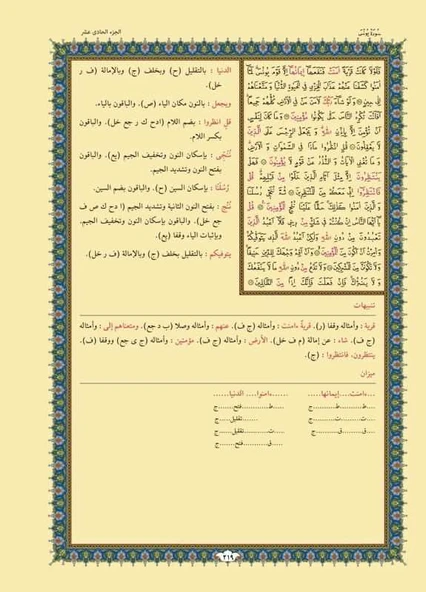 سورة يونس
الجزء الحادي عشر
فَلَوْلَا كَانَتْ قَرْيَةٌ ءَامَنَتْ فَنَفَعَهَا إِيمَانُهَا إِلَّا قَوْمَ يُونُسَ لَمَّا
ءَامَنُوا كَشَفْنَا عَنْهُمْ عَذَابَ الْخِزْيِ فِي الْحَيَوٰةِ الدُّنْيَا وَمَتَّعْنَاهُمْ
إِلَىٰ حِينٍ وَلَوْ شَاءَ رَبُّكَ لَآمَنَ مَن فِي الْأَرْضِ كُلُّهُمْ جَمِيعًا
أَفَأَنتَ تُكْرِهُ النَّاسَ حَتَّىٰ يَكُونُوا مُؤْمِنِينَ وَمَا كَانَ لِنَفْسٍ
أَن تُؤْمِنَ إِلَّا بِإِذْنِ اللَّهِ وَيَجْعَلُ الرِّجْسَ عَلَى الَّذِينَ
لَا يَعْقِلُونَ قُلِ انظُرُوا مَاذَا فِي السَّمَاوَاتِ وَالْأَرْضِ
وَمَا تُغْنِي الْآيَاتُ وَالنُّذُرُ عَن قَوْمٍ لَّا يُؤْمِنُونَ فَهَلْ
يَنتَظِرُونَ إِلَّا مِثْلَ أَيَّامِ الَّذِينَ خَلَوْا مِن قَبْلِهِمْ قُلْ
فَانتَظِرُوا إِنِّي مَعَكُم مِّنَ الْمُنتَظِرِينَ ثُمَّ نُنَجِّي رُسُلَنَا
وَالَّذِينَ ءَامَنُوا كَذَٰلِكَ حَقًّا عَلَيْنَا نُنجِ الْمُؤْمِنِينَ قُلْ
يَا أَيُّهَا النَّاسُ إِن كُنتُمْ فِي شَكٍّ مِّن دِينِي فَلَا أَعْبُدُ الَّذِينَ
تَعْبُدُونَ مِن دُونِ اللَّهِ وَلَٰكِنْ أَعْبُدُ اللَّهَ الَّذِي يَتَوَفَّاكُمْ
وَأُمِرْتُ أَنْ أَكُونَ مِنَ الْمُؤْمِنِينَ وَأَنْ أَقِمْ وَجْهَكَ لِلدِّينِ حَنِيفًا
وَلَا تَكُونَنَّ مِنَ الْمُشْرِكِينَ وَلَا تَدْعُ مِن دُونِ اللَّهِ مَا لَا يَنفَعُكَ
وَلَا يَضُرُّكَ فَإِن فَعَلْتَ فَإِنَّكَ إِذًا مِّنَ الظَّالِمِينَ
الدنيا : بالتقليل (ح) وبخلف (ج) وبالإمالة (ف ر
خل).
ويجعل : بالنون مكان الياء (ص). والباقون بالياء.
قل انظروا : بضم اللام (ادح ك رجع خل). والباقون
بكسر اللام.
نُنْجِي : بإسكان النون وتخفيف الجيم (يع). والباقون
بفتح النون وتشديد الجيم.
رُسْلَنَا : بإسكان السين (ح). والباقون بضم السين.
نُنَجِّ : بفتح النون الثانية وتشديد الجيم (ا دح ك ص ف
جع خل). والباقون بإسكان النون وتخفيف الجيم.
وبإثبات الياء وقفا (يع).
يتوفيكم : بالتقليل بخلف (ج) وبالإمالة (ف ر خل).
تنبيهات
قرية : وأمثاله وقفا (ر). قرية ءامنت : وأمثاله (ج ف). عنهم : وأمثاله وصلا (ب د جع). ومتعناهم إلى : وأمثاله
(ج ف). شاء : عن إمالة (م ف خل). الأرض : وأمثاله (ج ف). مؤمنين : وأمثاله (ج ى جع) ووقفا (ف).
ينتظرون، فانتظروا : (ج).
ميزان
...ءامنت....إيمانها....
......ءامنوا.... الدنيا......
...ط.......ط.......ج
...ط.......فتح.......ج
...ت.......ت.......ج
.......تقليل.....ج
...ق.......ق.......ج
...ت.......تقليل.....ج
...ق.......فتح.......ج
٢١٩